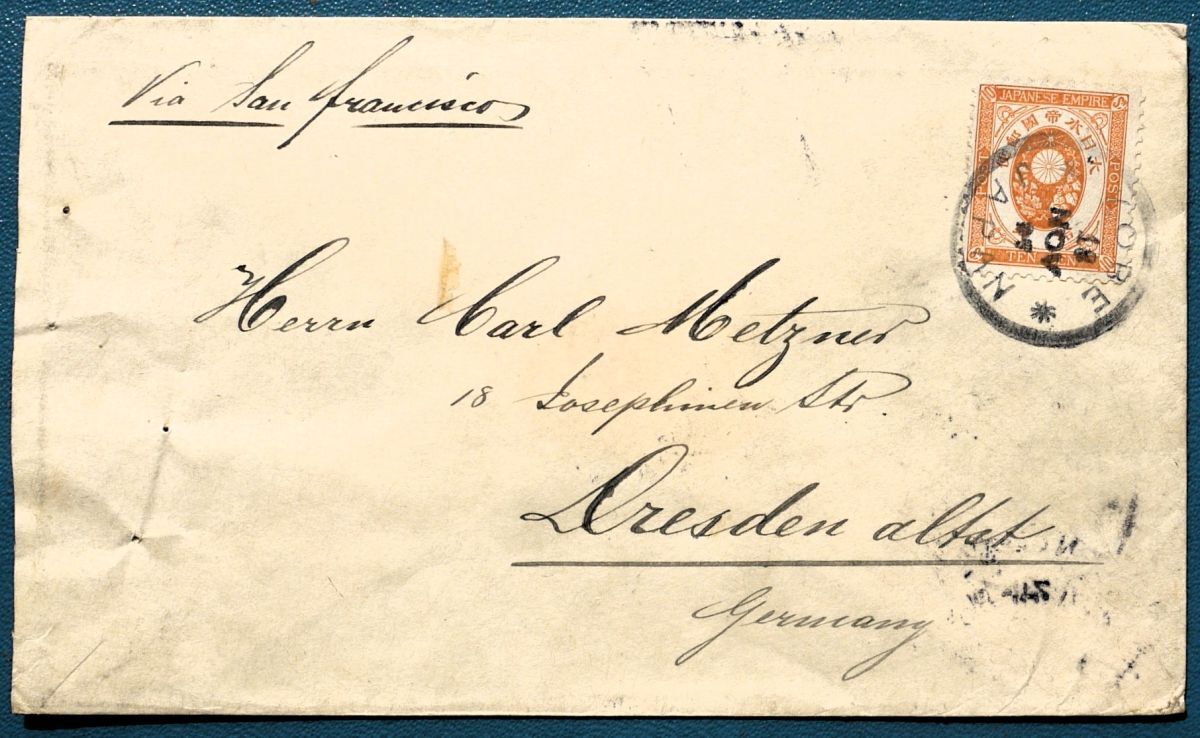 Via San Francisco
JAPANESE EMPIRE
大日本帝國郵
POST
TEN SEN
KOBE
JAPAN
NOV
Herrn Carl Metzner
18 Josephinen Str
Dresden altst
Germany